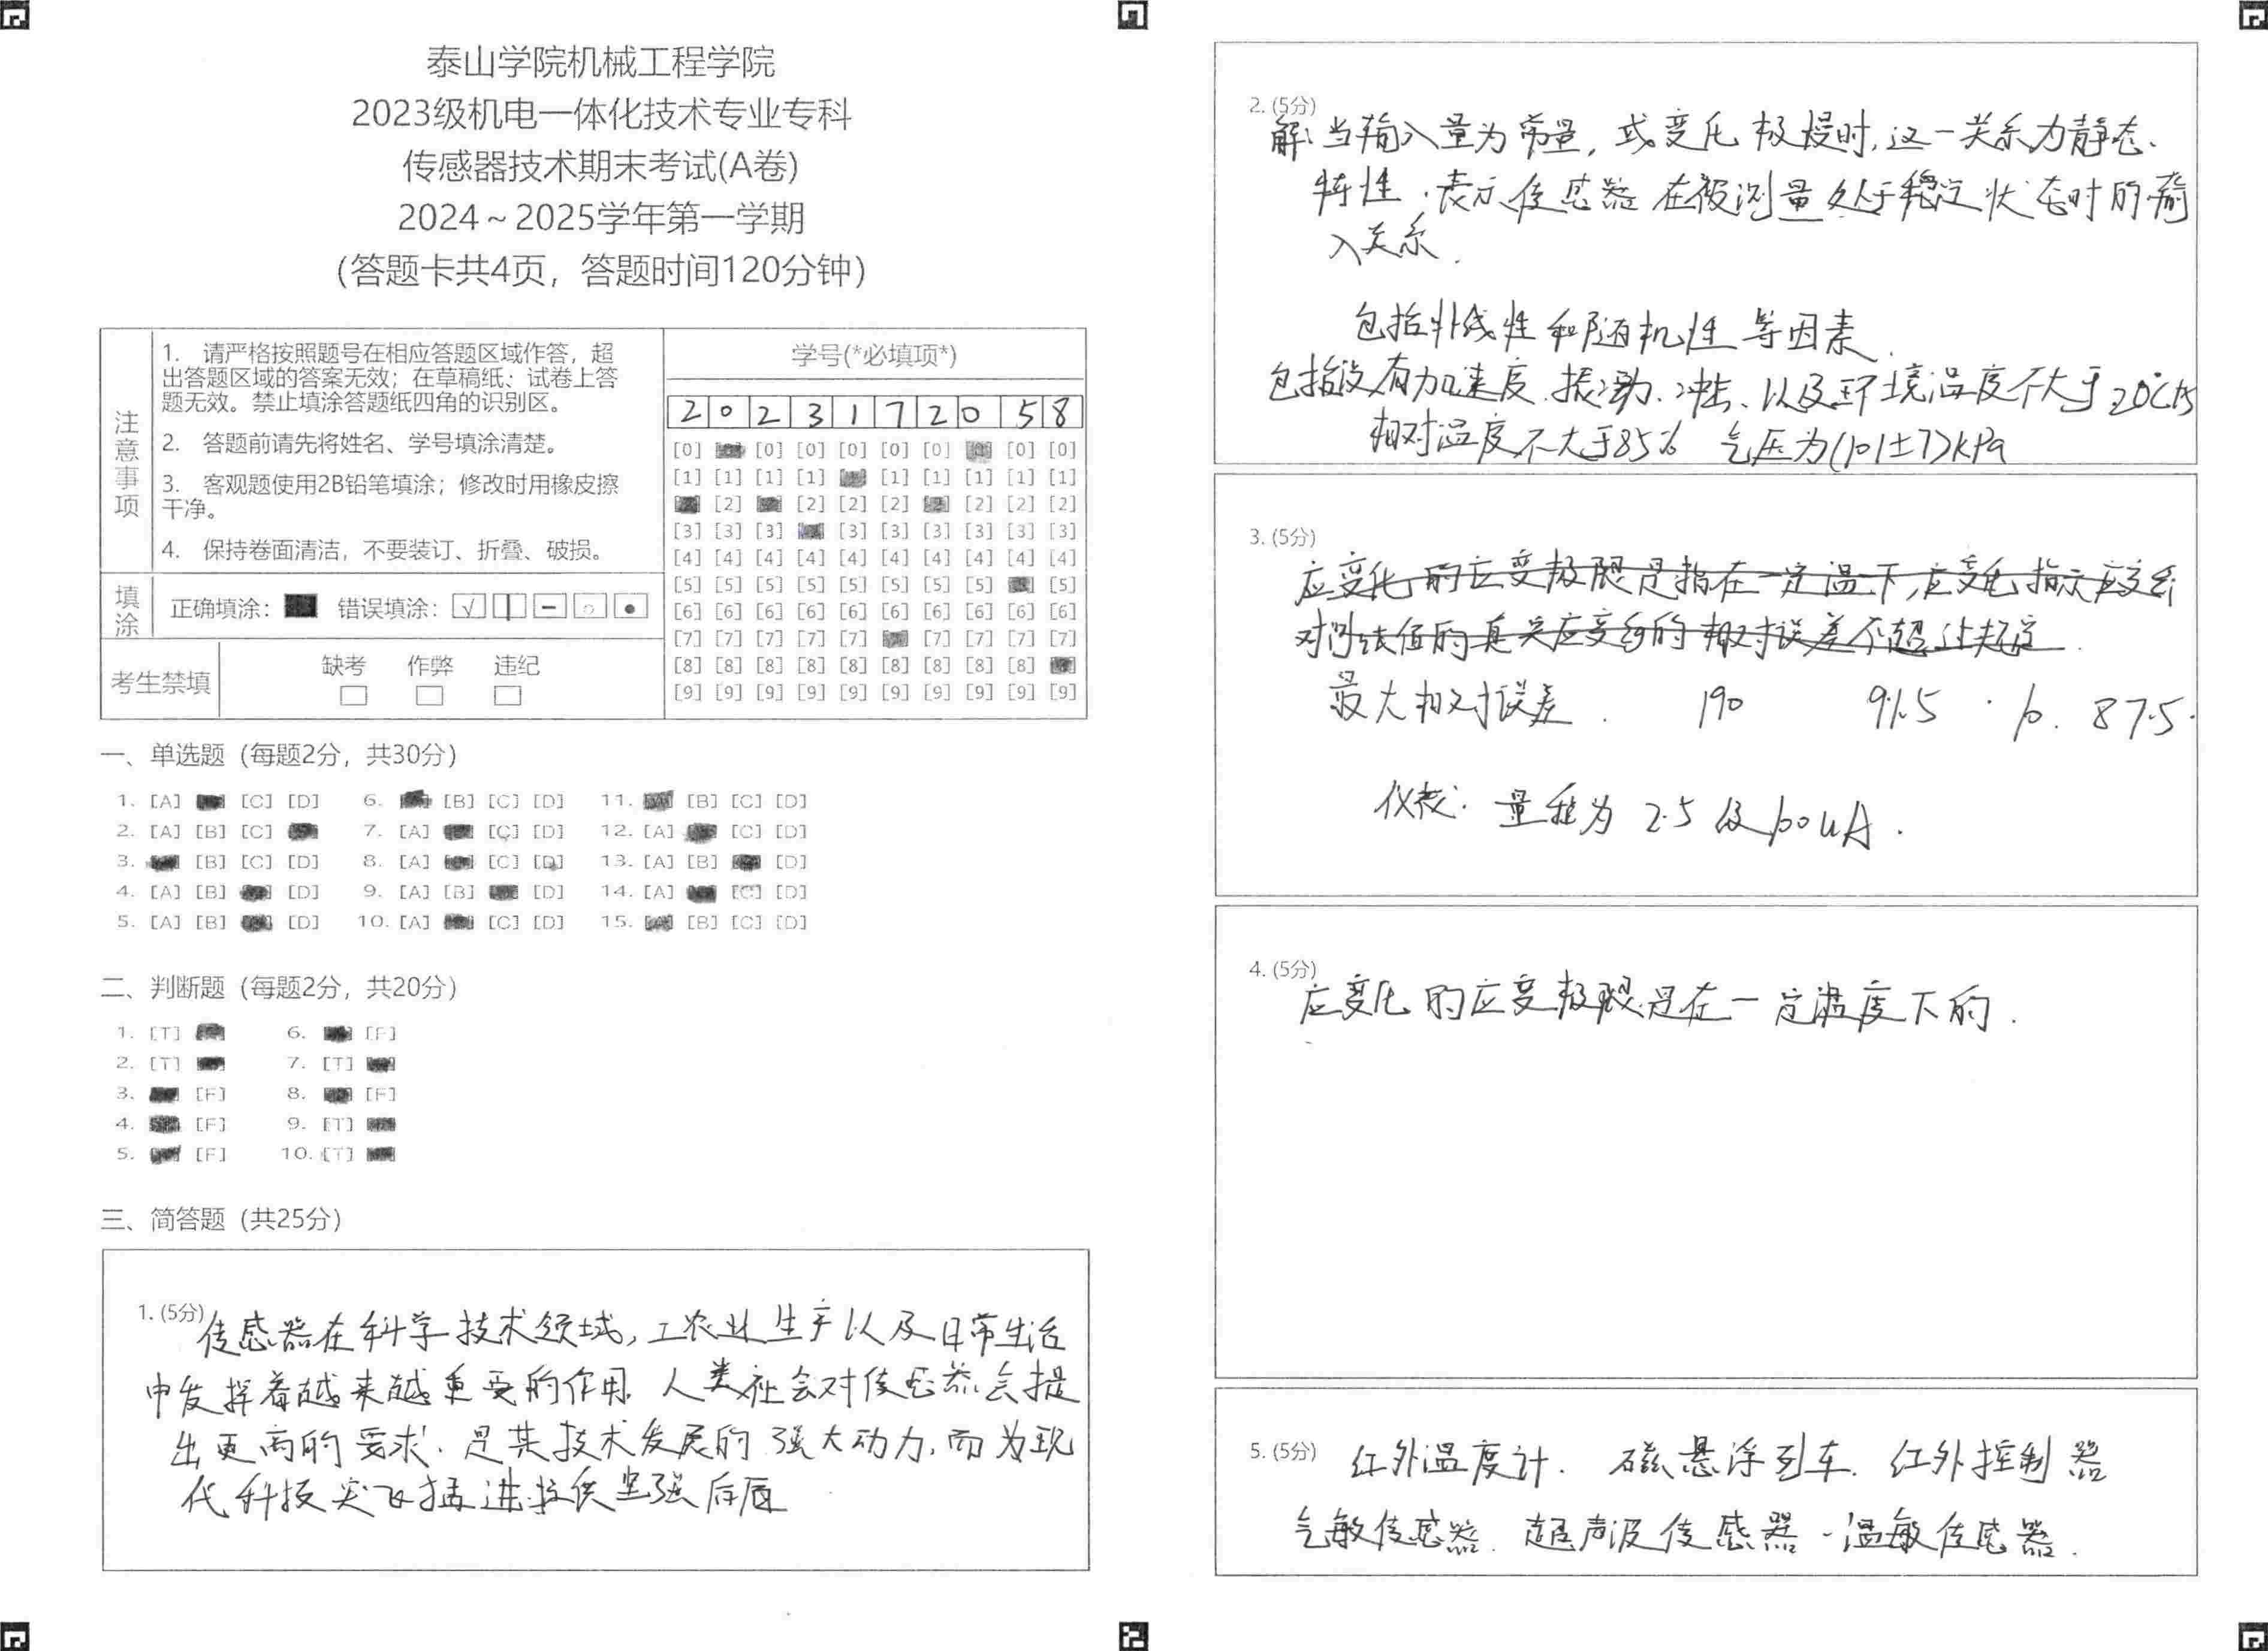 泰山学院机械工程学院
2023级机电一体化技术专业专科
传感器技术期末考试(A卷)
2024～2025学年第一学期
(答题卡共4页，答题时间120分钟)
注意事项
1. 请严格按照题号在相应答题区域作答，超
出答题区域的答案无效；在草稿纸、试卷上答
题无效。禁止填涂答题纸四角的识别区。
2. 答题前请先将姓名、学号填涂清楚。
3. 客观题使用2B铅笔填涂；修改时用橡皮擦
干净。
4. 保持卷面清洁，不要装订、折叠、破损。
填涂
正确填涂： 错误填涂：
考生禁填
缺考 作弊 违纪
学号(*必填项*)
2 0 2 3 1 7 2 0 5 8
[0] [0] [0] [0] [0] [0] [0] [0]
[1] [1] [1] [1] [1] [1] [1] [1] [1]
[2] [2] [2] [2] [2] [2] [2]
[3] [3] [3] [3] [3] [3] [3] [3] [3]
[4] [4] [4] [4] [4] [4] [4] [4] [4] [4]
[5] [5] [5] [5] [5] [5] [5] [5] [5]
[6] [6] [6] [6] [6] [6] [6] [6] [6] [6]
[7] [7] [7] [7] [7] [7] [7] [7] [7]
[8] [8] [8] [8] [8] [8] [8] [8] [8]
[9] [9] [9] [9] [9] [9] [9] [9] [9] [9]
一、单选题 (每题2分，共30分)
1. [A] [C] [D] 6. [B] [C] [D] 11. [B] [C] [D]
2. [A] [B] [C] 7. [A] [C] [D] 12. [A] [C] [D]
3. [B] [C] [D] 8. [A] [C] [D] 13. [A] [B] [D]
4. [A] [B] [D] 9. [A] [B] [D] 14. [A] [C] [D]
5. [A] [B] [D] 10. [A] [C] [D] 15. [B] [C] [D]
二、判断题 (每题2分，共20分)
1. [T] 6. [F]
2. [T] 7. [T]
3. [F] 8. [F]
4. [F] 9. [T]
5. [F] 10. [T]
三、简答题 (共25分)
1. (5分) 传感器在科学技术领域,工农业生产以及日常生活
中发挥着越来越重要的作用. 人类社会对传感器会提
出更高的要求.是其技术发展的强大动力.而为现
代科技突飞猛进提供坚强后盾
2. (5分)
解:当输入量为常量,或变化极慢时.这一关系为静态.
特性.表示传感器在被测量处于稳定状态时的输
入关系.
包括非线性和随机性等因素.
包括没有加速度.振动.冲击、以及环境温度不大于20℃15
相对温度不大于85% 气压为(101±7)kPa
3. (5分)
应变化的应变极限是指在一定温下,应变化指示应变
对的真实应变的相对误差不超过规定.
最大相对误差. 190 91.5 . 10. 87.5.
仪表: 量程为 2.5级100uA.
4. (5分)
应变化的应变极限是在一定温度下的.
5. (5分) 红外温度计. 磁悬浮列车. 红外控制器
气敏传感器. 超声波传感器.温敏传感器.